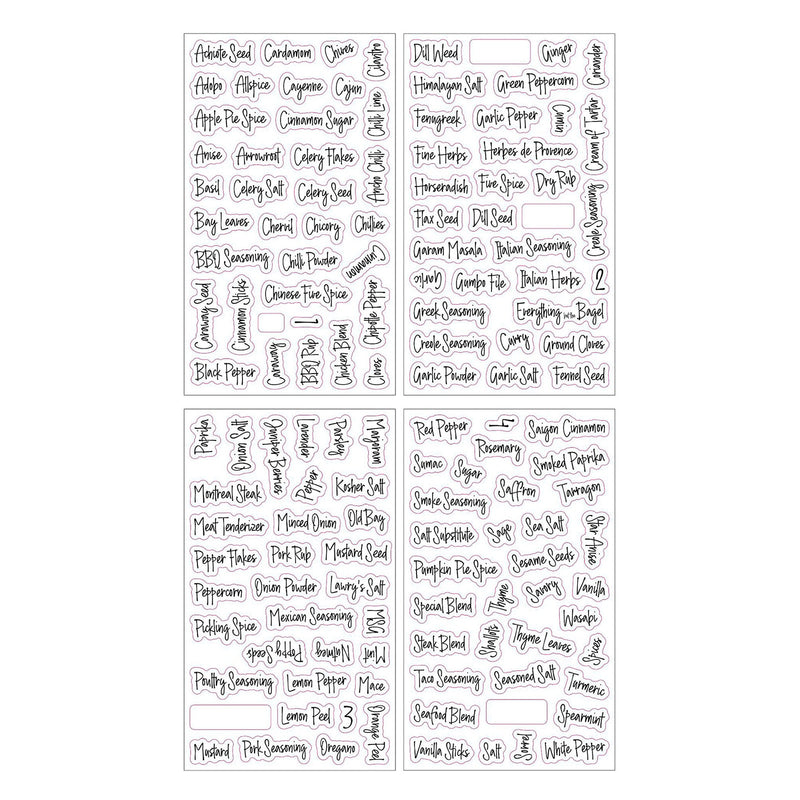 Achiote Seed
Cardamom
Chives
Cilantro
Adobo
Allspice
Cayenne
Cajun
Apple Pie Spice
Cinnamon Sugar
Chili Lime
Anise
Arrowroot
Celery Flakes
Ancho Chili
Basil
Celery Salt
Celery Seed
Bay Leaves
Chervil
Chicory
Chillies
BBQ Seasoning
Chili Powder
Cinnamon
Caraway Seed
Cinnamon Sticks
Chinese Five Spice
Chipotle Pepper
1
Black Pepper
Caraway
BBQ Rub
Chicken Blend
Cloves
Dill Weed
Ginger
Coriander
Himalayan Salt
Green Peppercorn
Fenugreek
Garlic Pepper
Cumin
Cream of Tartar
Fine Herbs
Herbes de Provence
Horseradish
Five Spice
Dry Rub
Creole Seasoning
Flax Seed
Dill Seed
Garam Masala
Italian Seasoning
Garlic
Gumbo File
Italian Herbs
2
Greek Seasoning
Everything but the Bagel
Creole Seasoning
Curry
Ground Cloves
Garlic Powder
Garlic Salt
Fennel Seed
Paprika
Onion Salt
Juniper Berries
Lavender
Parsley
Marjoram
Pepper
Montreal Steak
Kosher Salt
Meat Tenderizer
Minced Onion
Old Bay
Pepper Flakes
Pork Rub
Mustard Seed
Peppercorn
Onion Powder
Lawry's Salt
Pickling Spice
Mexican Seasoning
MSG
Poppy Seeds
Nutmeg
Mint
Poultry Seasoning
Lemon Pepper
Mace
Lemon Peel
3
Orange Peel
Mustard
Pork Seasoning
Oregano
Red Pepper
4
Saigon Cinnamon
Rosemary
Sumac
Sugar
Smoked Paprika
Smoke Seasoning
Saffron
Tarragon
Salt Substitute
Sage
Sea Salt
Star Anise
Pumpkin Pie Spice
Sesame Seeds
Special Blend
Thyme
Savory
Vanilla
Wasabi
Steak Blend
Shallots
Thyme Leaves
Spices
Taco Seasoning
Seasoned Salt
Turmeric
Seafood Blend
Spearmint
Vanilla Sticks
Salt
Sorrel
White Pepper